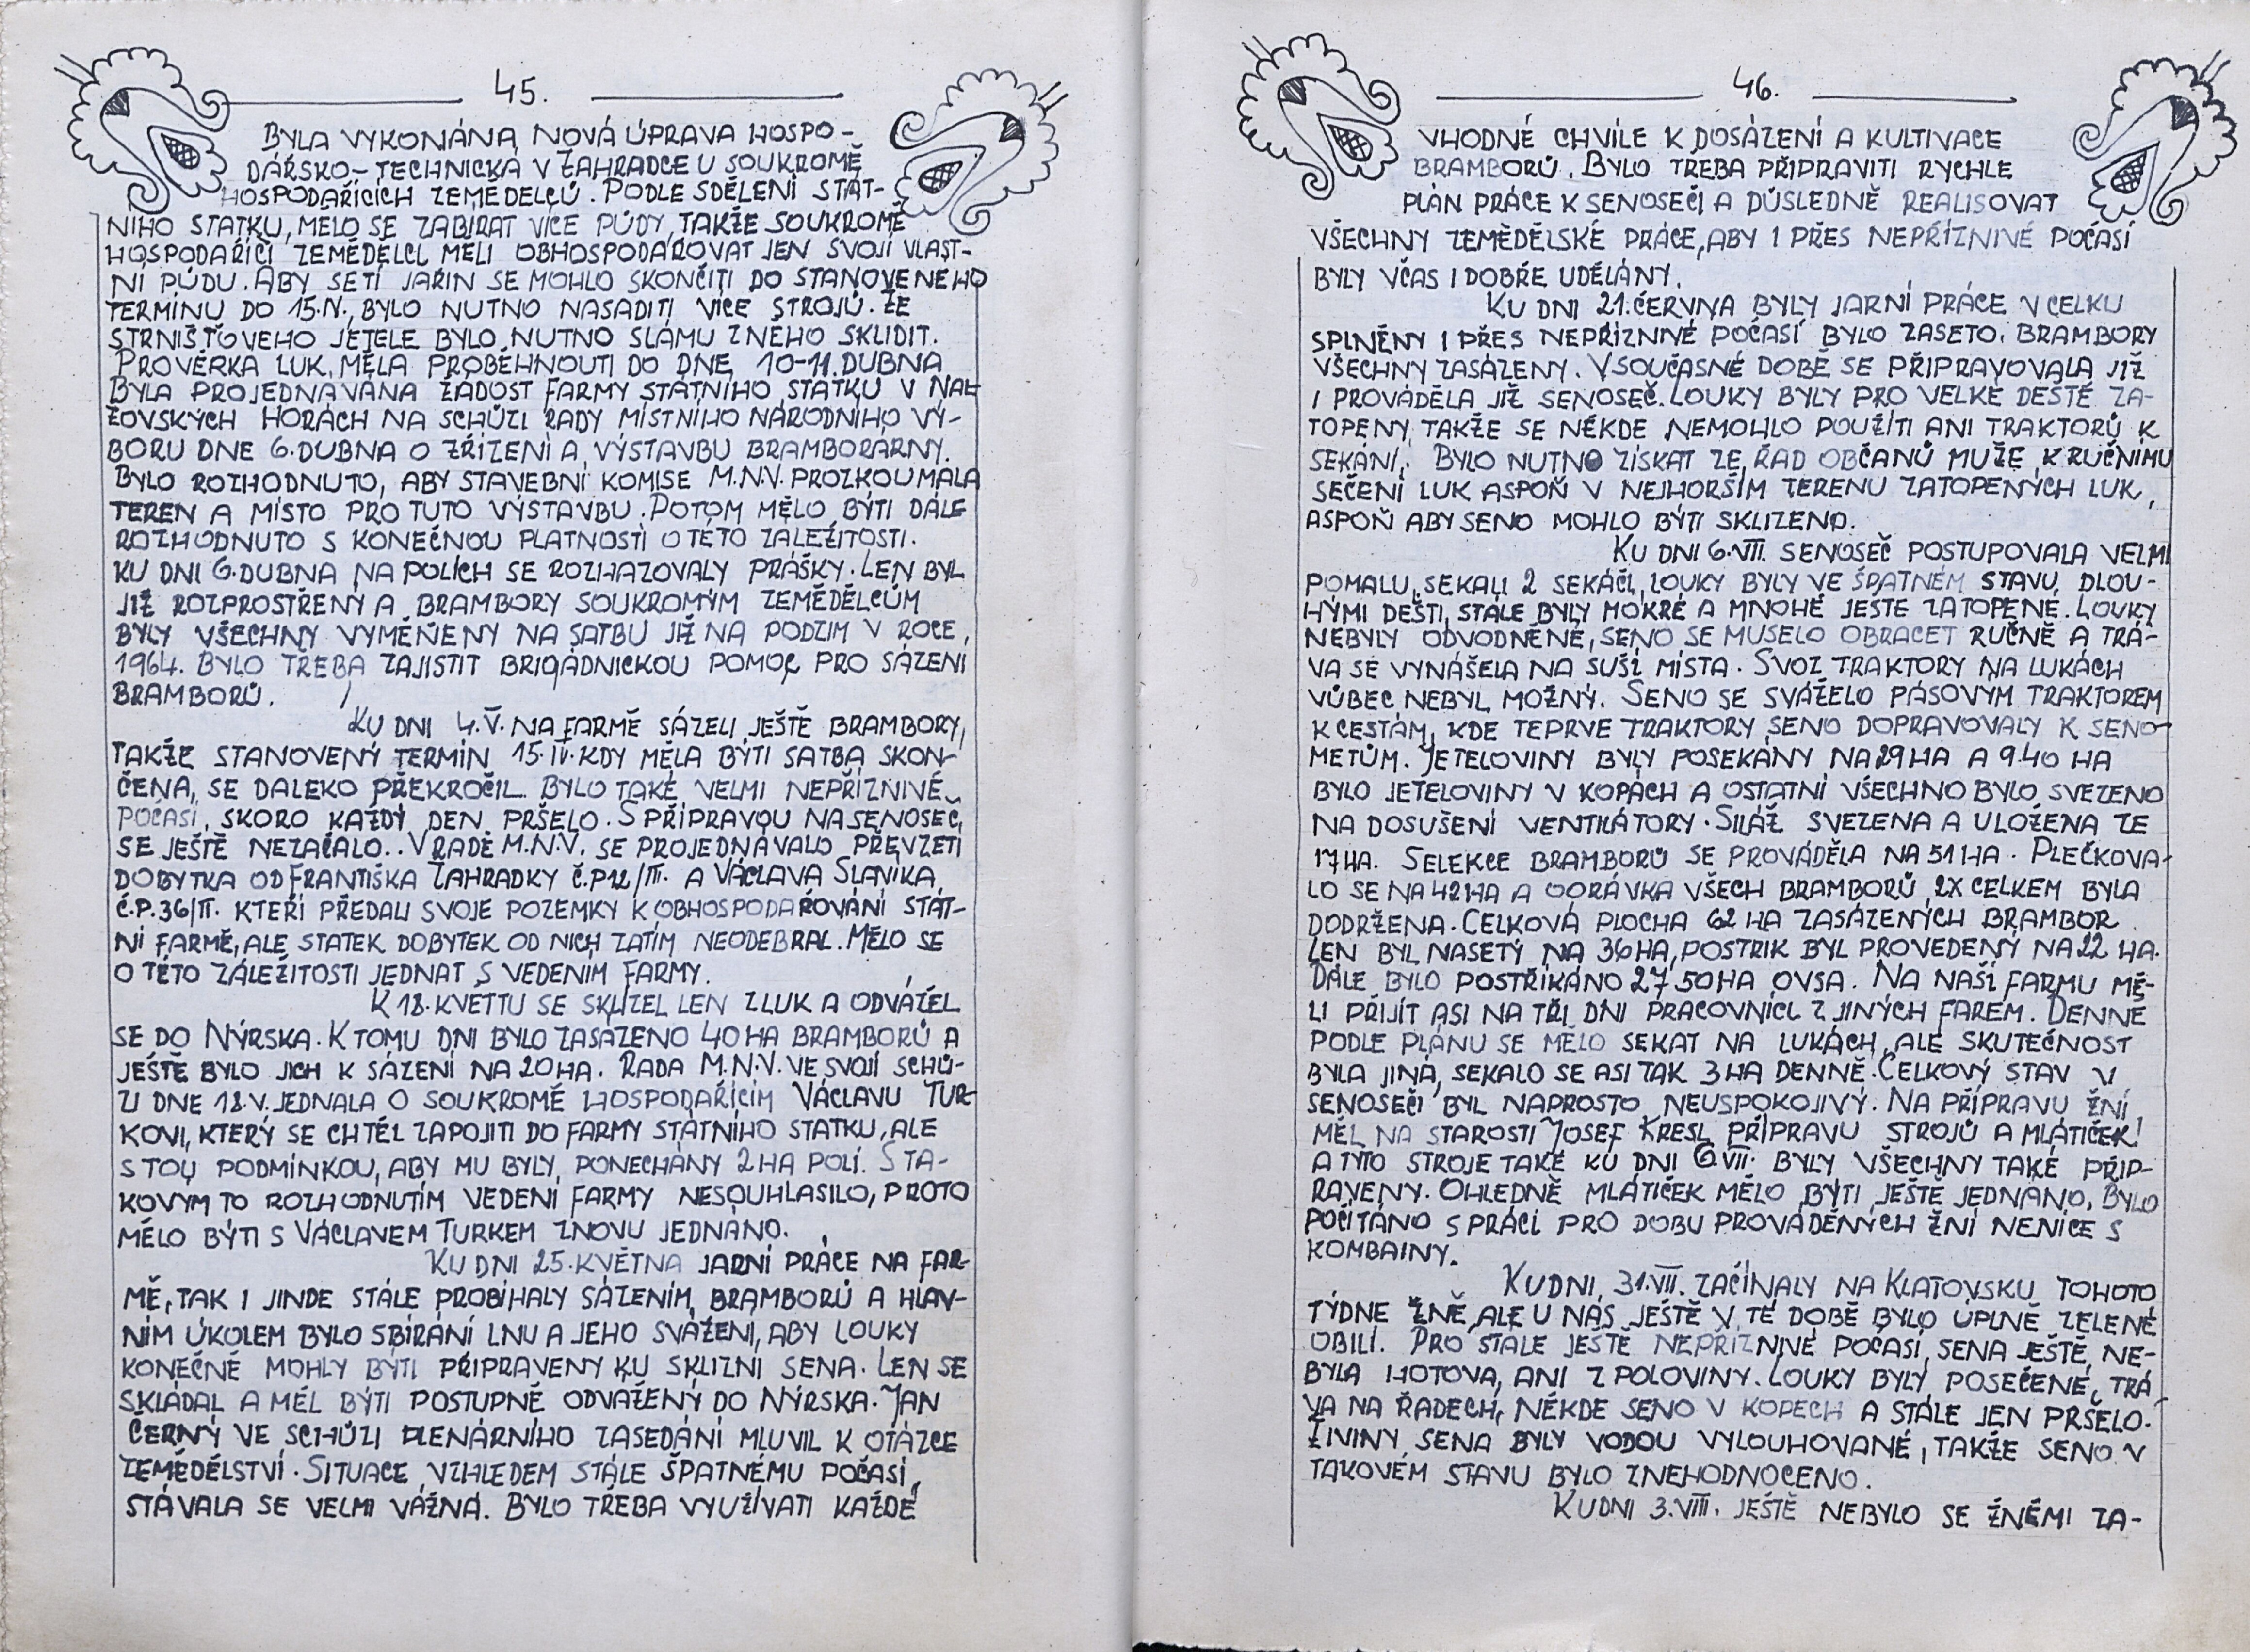 45.
BYLA VYKONÁNA NOVÁ ÚPRAVA HOSPO-
DÁŘSKO-TECHNICKÁ V ZAHRADCE U SOUKROMĚ
HOSPODAŘÍCÍCH ZEMĚDĚLCŮ. PODLE SDĚLENÍ STÁT-
NÍHO STATKU, MĚLO SE ZABÍRAT VÍCE PŮDY, TAKŽE SOUKROMĚ
HOSPODAŘÍCÍ ZEMĚDĚLCI MĚLI OBHOSPODAŘOVAT JEN SVOJÍ VLAST-
NÍ PŮDU. ABY SETÍ JAŘIN SE MOHLO SKONČITI DO STANOVENÉHO
TERMÍNU DO 15.IV., BYLO NUTNO NASADITI VÍCE STROJŮ. ZE
STRNIŠŤOVÉHO JETELE BYLO NUTNO SLÁMU Z NĚHO SKLIDIT.
PROVĚRKA LUK MĚLA PROBĚHNOUTI DO DNE 10-11. DUBNA
BYLA PROJEDNÁVÁNA ŽÁDOST FARMY STÁTNÍHO STATKU V NAL-
ŽOVSKÝCH HORÁCH NA SCHŮZI RADY MÍSTNÍHO NÁRODNÍHO VÝ-
BORU DNE 6. DUBNA O ZŘÍZENÍ A VÝSTAVBU BRAMBORÁRNY.
BYLO ROZHODNUTO, ABY STAVEBNÍ KOMISE M.N.V. PROZKOUMALA
TEREN A MÍSTO PRO TUTO VÝSTAVBU. POTOM MĚLO BÝTI DÁLE
ROZHODNUTO S KONEČNOU PLATNOSTÍ O TÉTO ZÁLEŽITOSTI.
KU DNI 6. DUBNA NA POLÍCH SE ROZHAZOVALY PRÁŠKY. LEN BYL
JIŽ ROZPROSTŘENÝ A BRAMBORY SOUKROMÝM ZEMĚDĚLCŮM
BYLY VŠECHNY VYMĚŇENY NA SATBU JIŽ NA PODZIM V ROCE,
1964. BYLO TŘEBA ZAJISTIT BRIGÁDNICKOU POMOC PRO SÁZENÍ
BRAMBORŮ.
KU DNI 4.V. NA FARMĚ SÁZELI JEŠTĚ BRAMBORY,
TAKŽE STANOVENÝ TERMÍN 15.IV. KDY MĚLA BÝTI SATBA SKON-
ČENA, SE DALEKO PŘEKROČIL. BYLO TAKÉ VELMI NEPŘÍZNIVÉ
POČASÍ, SKORO KAŽDÝ DEN PRŠELO. S PŘÍPRAVOU NA SENOSEČ,
SE JEŠTĚ NEZAČALO.. V RADĚ M.N.V. SE PROJEDNÁVALO PŘEVZETÍ
DOBYTKA OD FRANTIŠKA ZAHRÁDKY Č.P12/III. A VÁCLAVA SLANÍKA
Č.P.36/II. KTEŘÍ PŘEDALI SVOJE POZEMKY K OBHOSPODAŘOVÁNÍ STÁT-
NÍ FARMĚ, ALE STATEK DOBYTEK OD NICH ZATÍM NEODEBRAL. MĚLO SE
O TÉTO ZÁLEŽITOSTI JEDNAT S VEDENÍM FARMY.
K 18. KVĚTTU SE SKLÍZEL LEN Z LUK A ODVÁŽEL
SE DO NÝRSKA. K TOMU DNI BYLO ZASÁZENO 40 HA BRAMBORŮ A
JEŠTĚ BYLO JICH K SÁZENÍ NA 20 HA. RADA M.N.V. VE SVOJÍ SCHŮ-
ZI DNE 18.V. JEDNALA O SOUKROMĚ HOSPODAŘÍCÍM VÁCLAVU TUR-
KOVI, KTERÝ SE CHTĚL ZAPOJITI DO FARMY STÁTNÍHO STATKU, ALE
S TOU PODMÍNKOU, ABY MU BYLY PONECHÁNY 2 HA POLÍ. S TA-
KOVÝM TO ROZHODNUTÍM VEDENÍ FARMY NESOUHLASILO, PROTO
MĚLO BÝTI S VÁCLAVEM TURKEM ZNOVU JEDNÁNO.
KU DNI 25. KVĚTNA JARNÍ PRÁCE NA FAR-
MĚ, TAK I JINDE STÁLE PROBÍHALY SÁZENÍM BRAMBORŮ A HLAV-
NÍM ÚKOLEM BYLO SBÍRÁNÍ LNU A JEHO SVÁŽENÍ, ABY LOUKY
KONEČNĚ MOHLY BÝTI PŘIPRAVENY KU SKLIZNI SENA. LEN SE
SKLÁDAL A MĚL BÝTI POSTUPNĚ ODVÁŽENÝ DO NÝRSKA. JAN
ČERNÝ VE SCHŮZI PLENÁRNÍHO ZASEDÁNÍ MLUVIL K OTÁZCE
ZEMĚDĚLSTVÍ. SITUACE VZHLEDEM STÁLE ŠPATNÉMU POČASÍ,
STÁVALA SE VELMI VÁŽNÁ. BYLO TŘEBA VYUŽÍVATI KAŽDÉ
46.
VHODNÉ CHVÍLE K DOSÁZENÍ A KULTIVACE
BRAMBORŮ. BYLO TŘEBA PŘIPRAVITI RYCHLE
PLÁN PRÁCE K SENOSEČI A DŮSLEDNĚ REALISOVAT
VŠECHNY ZEMĚDĚLSKÉ PRÁCE, ABY I PŘES NEPŘÍZNIVÉ POČASÍ
BYLY VČAS I DOBŘE UDĚLÁNY.
KU DNI 21. ČERVNA BYLY JARNÍ PRÁCE V CELKU
SPLNĚNY I PŘES NEPŘÍZNIVÉ POČASÍ BYLO ZASETO. BRAMBORY
VŠECHNY ZASÁZENY. V SOUČASNÉ DOBĚ SE PŘIPRAVOVALA JIŽ
I PROVÁDĚLA JIŽ SENOSEČ. LOUKY BYLY PRO VELKÉ DEŠTĚ ZA-
TOPENY, TAKŽE SE NĚKDE NEMOHLO POUŽÍTI ANI TRAKTORŮ K
SEKÁNÍ. BYLO NUTNO ZÍSKAT ZE ŘAD OBČANŮ MUŽE K RUČNÍMU
SEČENÍ LUK ASPOŇ V NEJHORŠÍM TERENU ZATOPENÝCH LUK,
ASPOŇ ABY SENO MOHLO BÝTI SKLIZENO.
KU DNI 6.VII. SENOSEČ POSTUPOVALA VELMI
POMALU, SEKALI 2 SEKÁČI, LOUKY BYLY VE ŠPATNÉM STAVU, DLOU-
HÝMI DEŠTI, STÁLE BYLY MOKRÉ A MNOHÉ JEŠTĚ ZATOPENÉ. LOUKY
NEBYLY ODVODNĚNÉ, SENO SE MUSELO OBRACET RUČNĚ A TRÁ-
VA SE VYNÁŠELA NA SUŠÍ MÍSTA. SVOZ TRAKTORY NA LUKÁCH
VŮBEC NEBYL MOŽNÝ. SENO SE SVÁŽELO PÁSOVÝM TRAKTOREM
K CESTÁM, KDE TEPRVE TRAKTORY SENO DOPRAVOVALY K SENO-
METŮM. JETELOVINY BYLY POSEKÁNY NA 29 HA A 9.40 HA
BYLO JETELOVINY V KOPÁCH A OSTATNÍ VŠECHNO BYLO SVEZENO
NA DOSUŠENÍ VENTILÁTORY. SILÁŽ SVEZENA A ULOŽENA ZE
17 HA. SELEKCE BRAMBORŮ SE PROVÁDĚLA NA 51 HA. PLEČKOVA-
LO SE NA 42 HA A OORÁVKA VŠECH BRAMBORŮ 2X CELKEM BYLA
DODRŽENA. CELKOVÁ PLOCHA 62 HA ZASÁZENÝCH BRAMBOR.
LEN BYL NASETÝ NA 36 HA, POSTŘIK BYL PROVEDENÝ NA 22 HA.
DÁLE BYLO POSTŘÍKÁNO 27,50 HA OVSA. NA NAŠÍ FARMU MĚ-
LI PŘIJÍT ASI NA TŘI DNI PRACOVNÍCI Z JINÝCH FAREM. DENNĚ
PODLE PLÁNU SE MĚLO SEKAT NA LUKÁCH, ALE SKUTEČNOST
BYLA JINÁ, SEKALO SE ASI TAK 3 HA DENNĚ. CELKOVÝ STAV V
SENOSEČI BYL NAPROSTO NEUSPOKOJIVÝ. NA PŘÍPRAVU ŽNÍ
MĚL NA STAROSTI JOSEF KRESL PŘÍPRAVU STROJŮ A MLÁTIČEK!
A TYTO STROJE TAKÉ KU DNI 6.VII. BYLY VŠECHNY TAKÉ PŘIP-
RAVENY. OHLEDNĚ MLÁTIČEK MĚLO BÝTI JEŠTĚ JEDNÁNO, BYLO
POČÍTÁNO S PRÁCÍ PRO DOBU PROVÁDĚNÝCH ŽNÍ NENÍCE S
KOMBAINY.
KU DNI, 31.VII. ZAČÍNALY NA KLATOVSKU TOHOTO
TÝDNE ŽNĚ, ALE U NÁS JEŠTĚ V TÉ DOBĚ BYLO ÚPLNĚ ZELENÉ
OBILÍ. PRO STÁLE JEŠTĚ NEPŘÍZNIVÉ POČASÍ, SENA JEŠTĚ NE-
BYLA HOTOVA, ANI Z POLOVINY. LOUKY BYLY POSEČENÉ, TRÁ-
VA NA ŘADECH, NĚKDE SENO V KOPECH A STÁLE JEN PRŠELO.
ŽIVINY SENA BYLY VODOU VYLOUHOVANÉ, TAKŽE SENO V
TAKOVÉM STAVU BYLO ZNEHODNOCENO.
KU DNI 3.VIII. JEŠTĚ NEBYLO SE ŽNĚMI ZA-